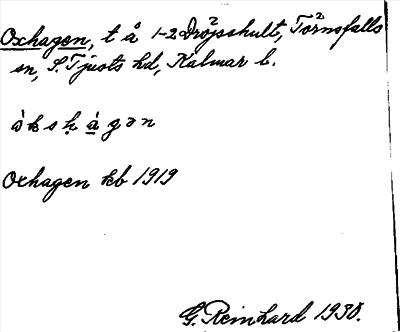 Oxhagen, t å 1-2 Dröpshult, Törnsfalls
sn, S. Tjusts hd, Kalmar l.
ò k s ḥ à g ə n
Oxhagen kb 1919
G. Reinhard 1930.